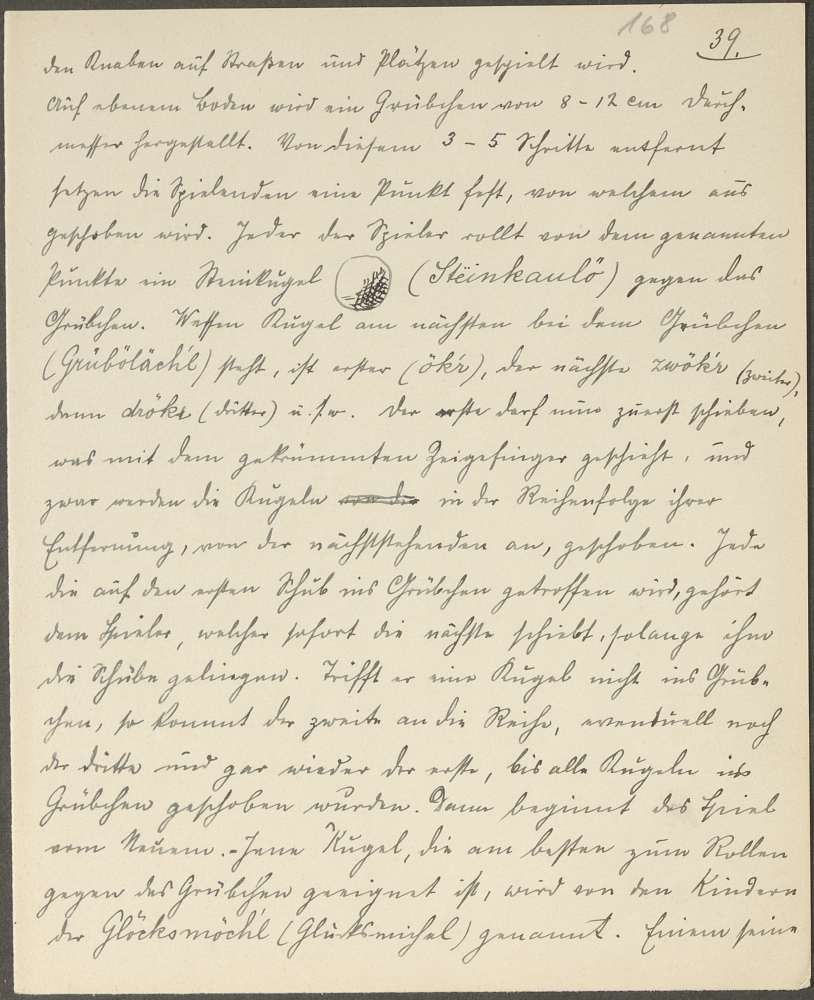 168
39.
den Knaben auf Straßen und Plätzen gespielt wird.
Auf ebenem Boden wird ein Grübchen von 8 - 12 cm Durch-
messer hergestellt. Von diesem 3 - 5 Schritte entfernt
setzen die Spielenden eine Punkt fest, von welchem aus
geschoben wird. Jeder der Spieler rollt von dem genannten
Punkte ein Steinkugel (Stëinkaulö) gegen das
Grübchen. Wessen Kugel am nächsten bei dem Grübchen
(Grübölächl) steht, ist erster (ökr), der nächste zwökr (zweiter),
dann drökr (dritter) u. s. w. Der erste darf nun zuerst schieben,
was mit dem gekrümmten Zeigefinger geschieht, und
zwar werden die Kugeln von der in der Reihenfolge ihrer
Entfernung, von der nächststehenden an, geschoben. Jede
die auf den ersten Schub ins Grübchen getroffen wird, gehört
dem Spieler, welcher sofort die nächste schiebt, solange ihm
die Schübe gelingen. Trifft er eine Kugel nicht ins Grüb-
chen, so kommt der zweite an die Reihe, eventuell noch
der dritte und gar wieder der erste, bis alle Kugeln ins
Grübchen geschoben wurden. Dann beginnt das Spiel
vom Neuem. - Jene Kugel, die am besten zum Rollen
gegen das Grübchen geeignet ist, wird von den Kindern
der Glöcksmöchl (Glücksmichel) genannt. Einem seine